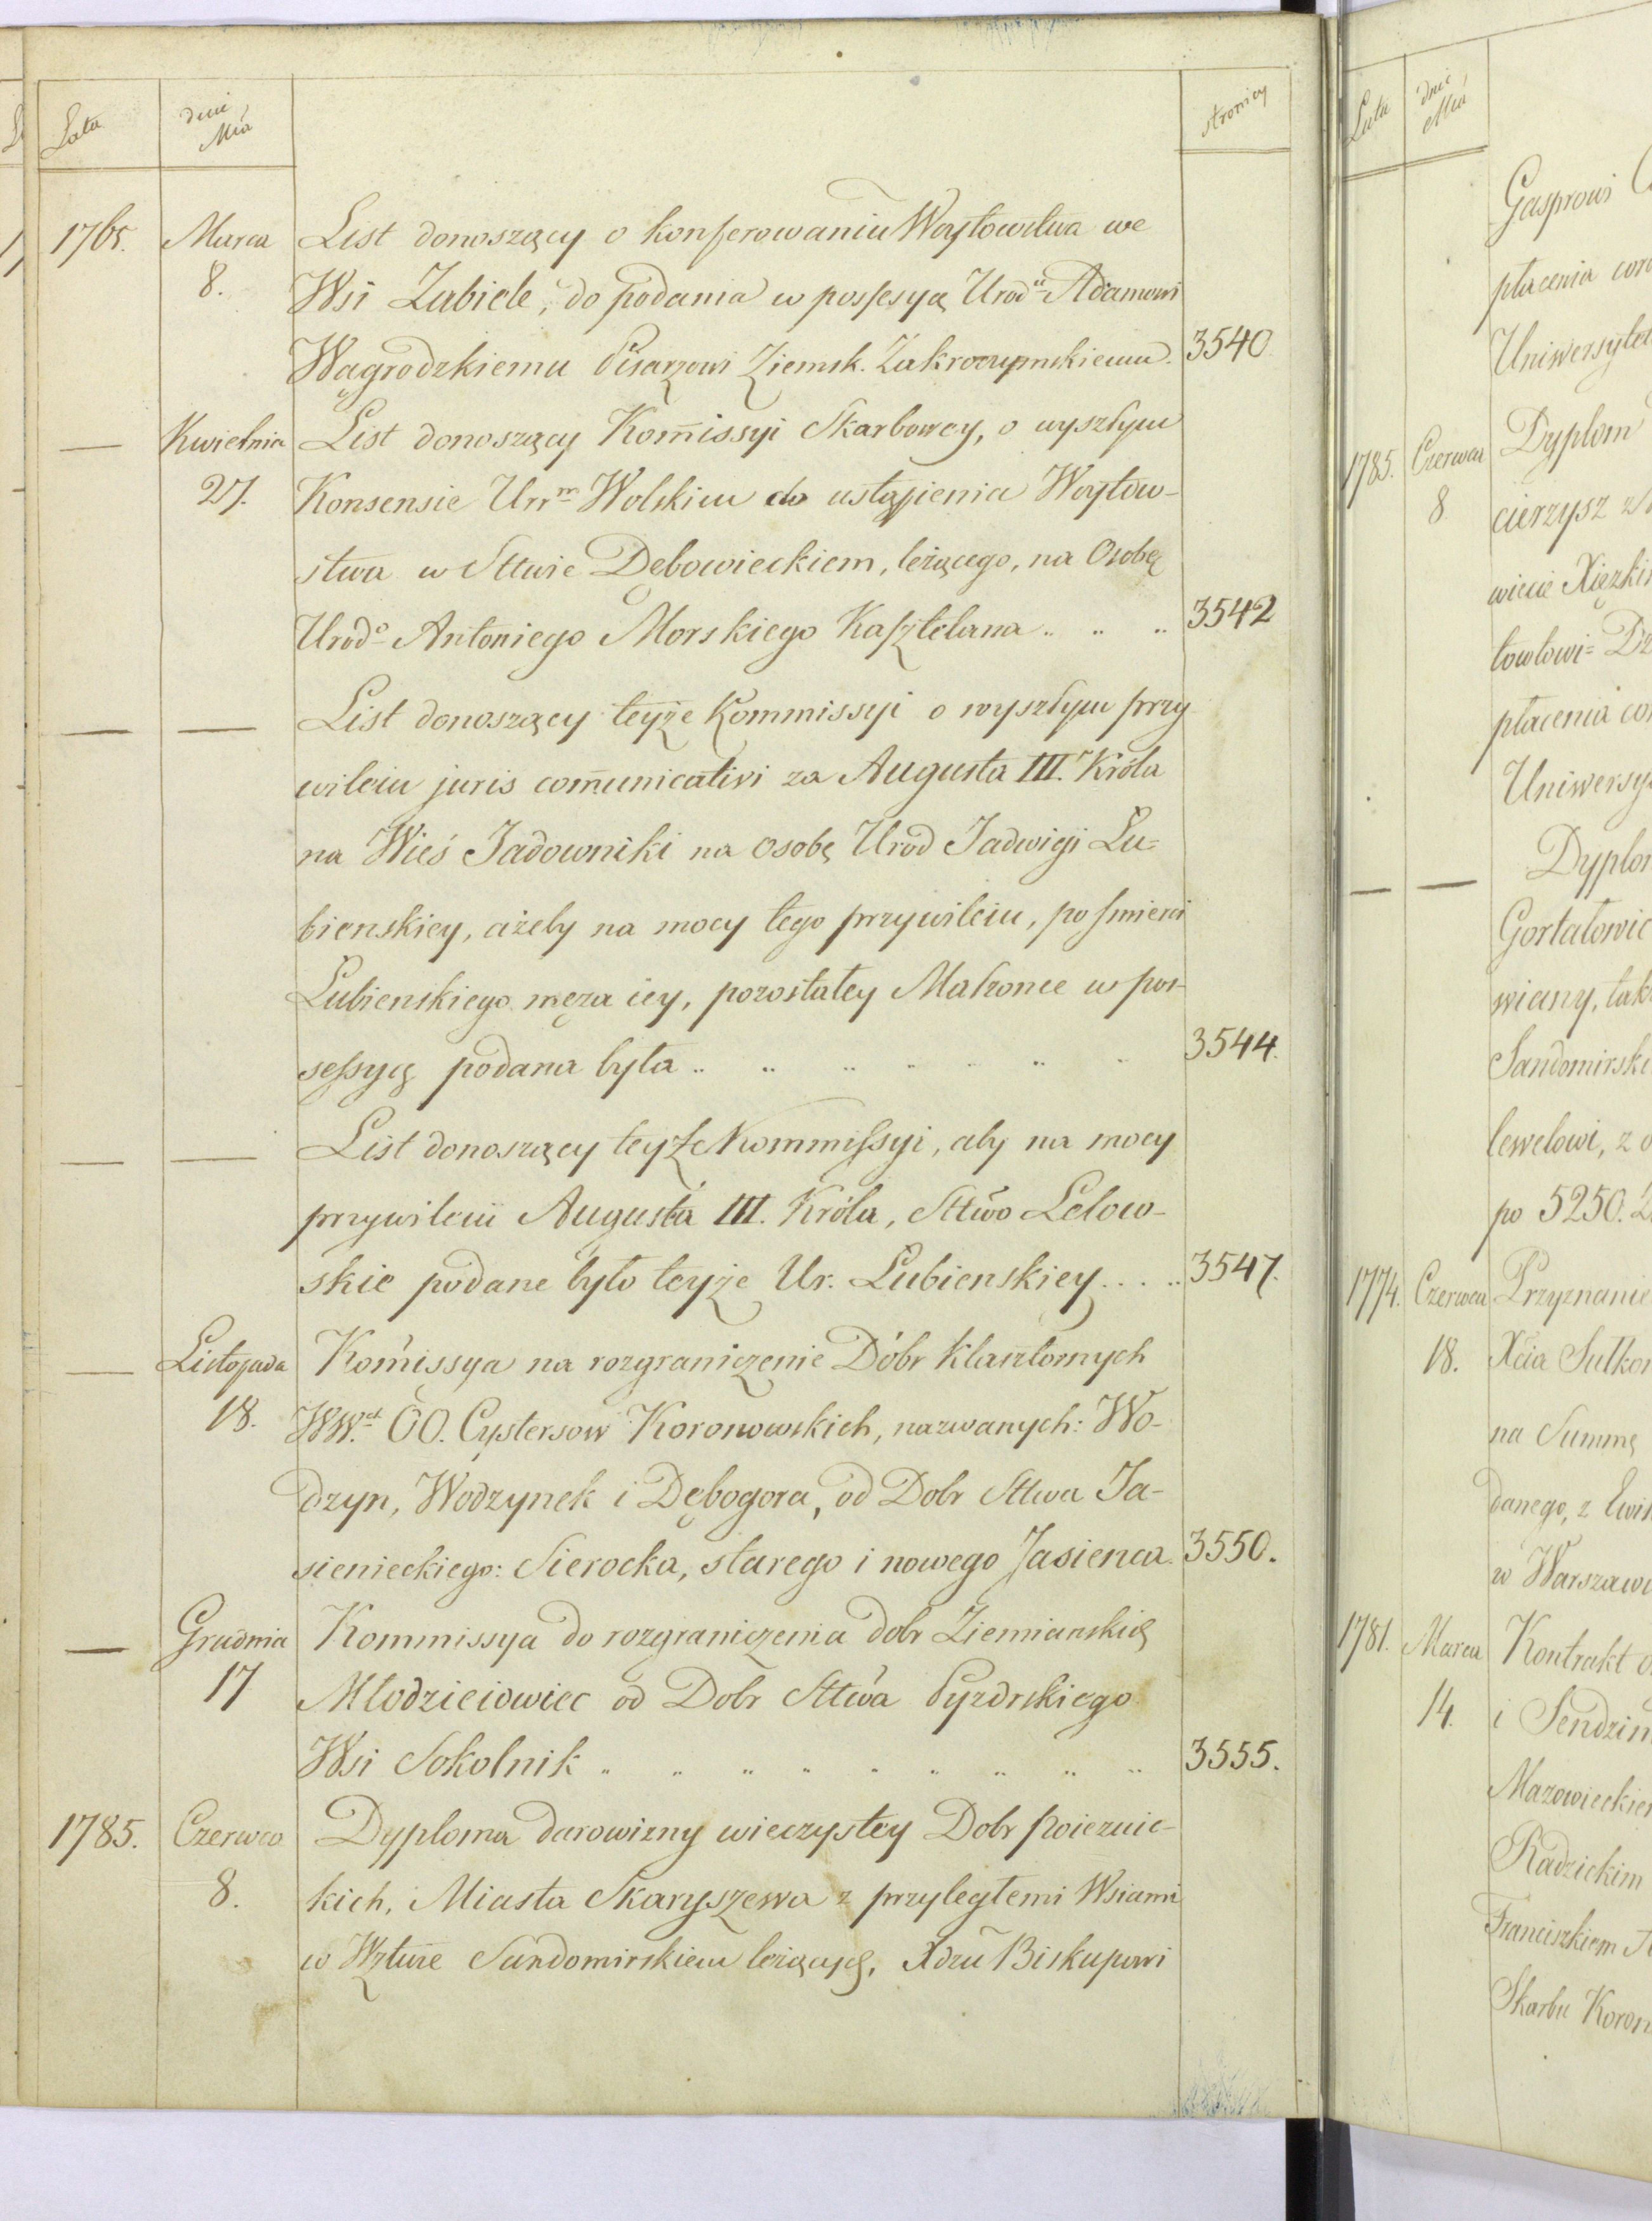 Lata dnie Mca stronicy
1765. Marca List donoszący o konferowaniu Woytowstwa we
8. Wsi Zabiele, do podania w possesyą Urod: Adamowi
Wągrodzkiemu Pisarzowi Ziemsk. Zakroczymskiemu. 3540
— Kwietnia List donoszący Kom̄issyi Skarbowey, o wyszłym
27. Konsensie Urr Wolskim do ustąpienia Woytow-
stwa w Sttwie Dębowieckiem, leżącego, na Osobę
Urodº Antoniego Morskiego Kasztelana .. .. .. 3542
— — List donoszący teyże Kommissyi o wyszłym przy
wileiu juris com̄unicativi za Augusta III. Króla
na Wieś Jadowniki na osobę Urod Jadwigi Łu=
bienskiey, ażeby na mocy tego przywileiu, po smierci
Łubienskiego męża iey, pozostałey Małzonce w pos-
sessyą podana była .. .. .. .. .. .. .. 3544.
— — List donoszący teyże Kommissyi, aby na mocy
przywileiu Augusta III. Króla, Sttwo Lelow-
skie podane było teyże Ur. Łubienskiey . . . .. 3547.
— Listopada Komissya na rozgraniczenie Dóbr klasztornych
18. WW. OO. Cystersow Koronowskich, nazwanych: Wo-
dzyn, Wodzynek i Dębogora, od Dobr Sttwa Ja-
sienieckiego: Sierocka, starego i nowego Jasienca. 3550.
— Grudnia Kommissya do rozgraniczenia dobr Ziemianskich
17 Młodzieiowiec od Dobr Sttwa Pyzdrskiego
Wsi Sokolnik .. .. .. .. .. .. .. .. .. 3555.
1785. Czerwca Dyploma darowizny wieczystey Dobr poiezuic-
8. kich, Miasta Skaryszewa z przyległemi Wsiami
w Wztwie Sandomirskiem leżących, Xdzu Biskupowi
Lata dnie Mca
Gasprowi
płacenia
Uniwersytet
1785. Czerwca Dyplom
8 cierzysz
wiecie
płacenia
Uniwersy
— — Dyplom
Gortatowic
wiany,
Sandomirski
lewelowi, z
po 5250.
1774. Czerwca Przyznanie
18. Xcia Sułkow
na Summę
danego, z
w Warszawi
1781. Marca Kontrakt
14. i Sendzim
Mazowieckiem
Radzickim
Franciszkiem
Skarbu Koron